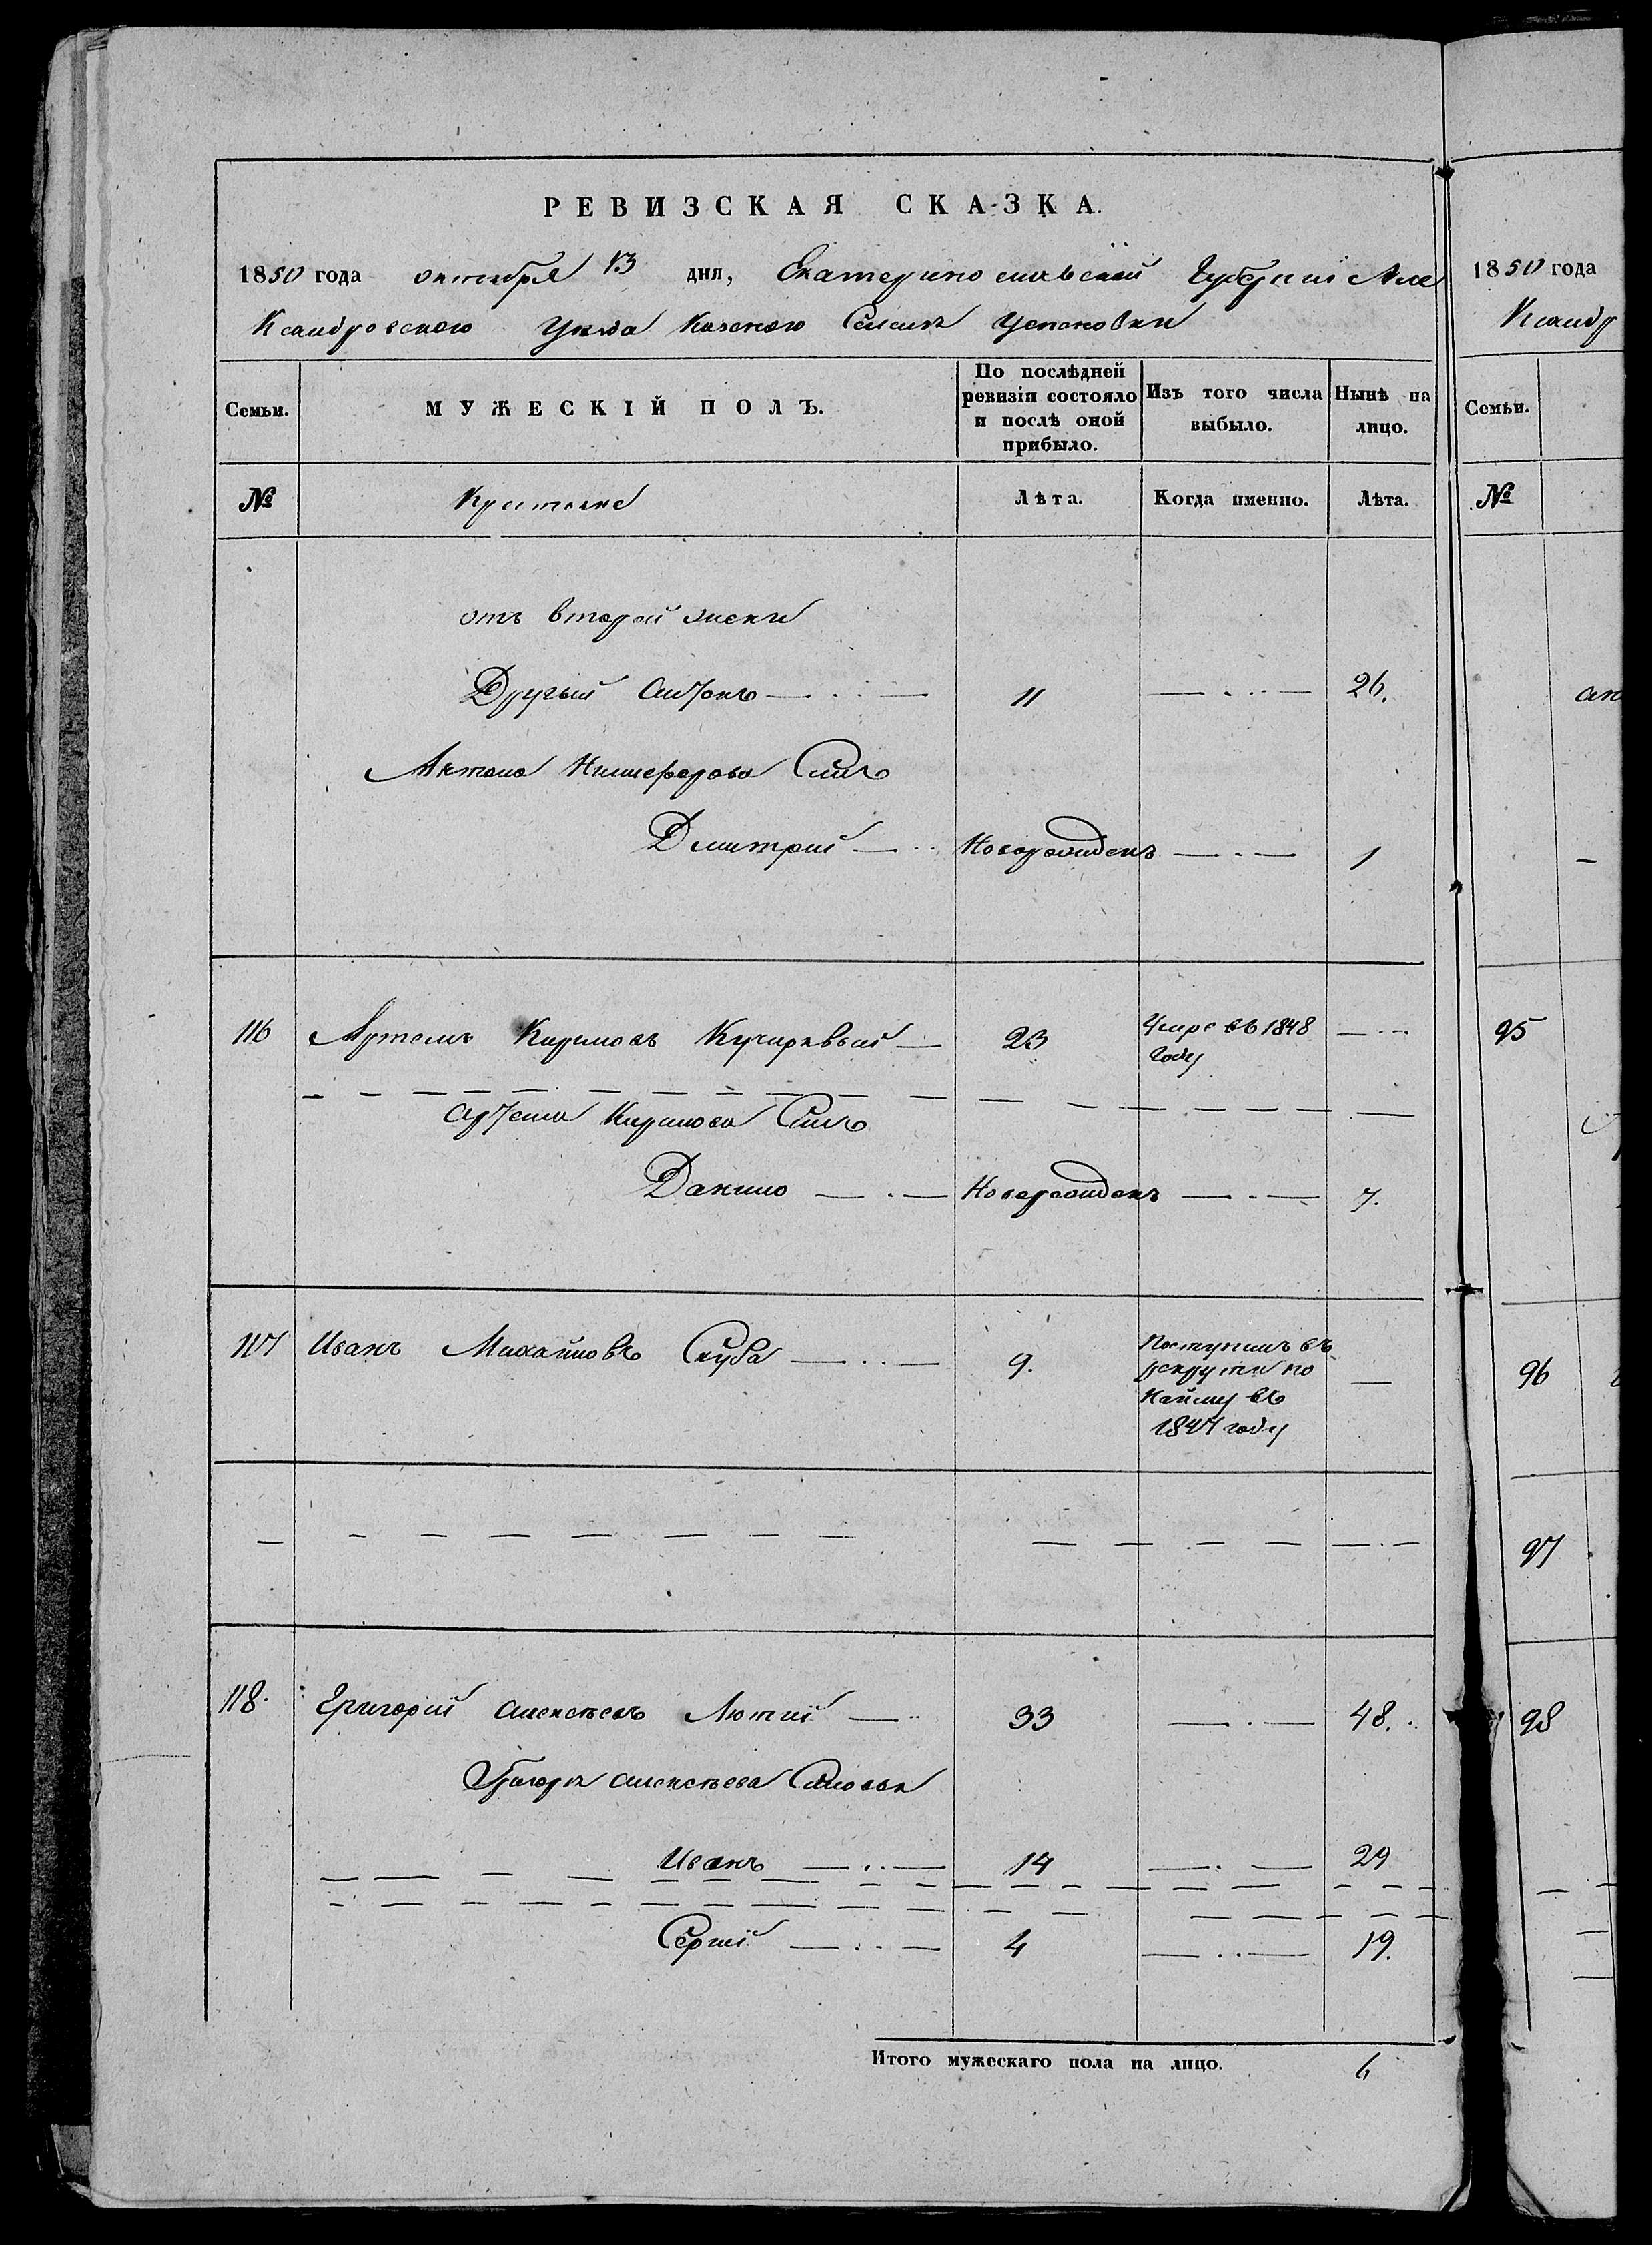 РЕВИЗСКАЯ СКАЗКА.
1850 года октября 13 дня, Екатеринославской Губернiи Але
ксандровскаго Уезда Казенаго Селения Успеновки
Семьи. МУЖЕСКIЙ ПОЛЪ. По послѣдней ревизiи состояло и послѣ оной прибыло. Изъ того числа выбыло. Нынѣ на лицо.
№ Крестьяне Лѣта. Когда именно. Лѣта.
отъ второй жены
Другий Антонъ 11 26.
Антона Никифорова Сынъ
Дмитрий Новорожденъ 1
116 Артемъ Каримовъ 23 Умре въ 1848 году
Артема Каримова Сынъ
Данило Новорожденъ 7.
117 Иванъ Михайловъ Скуба 9. Поступилъ въ рекруты по найму въ 1847 году
118. Григорий Алексѣевъ Лютий 33 48.
Григория Алексѣева Сыновья
Иванъ 14 29
Сергiй 4 19.
Итого мужескаго пола на лицо. 6
1850 года
ксандр
Семьи.
№
95
96
97
98